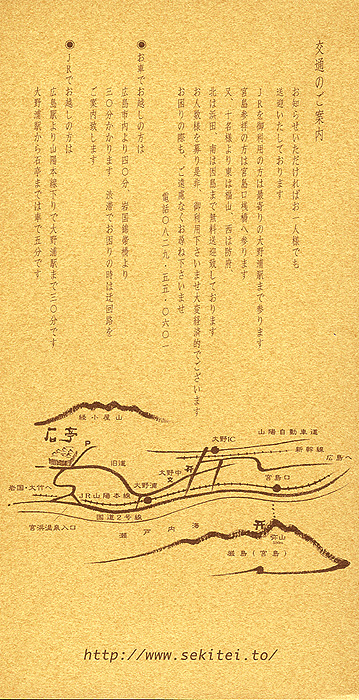 交通のご案内
お知らせいただければお一人様でも
送迎いたしております
ＪＲを御利用の方は最寄りの大野浦駅まで参ります
宮島参拝の方は宮島口桟橋へ参ります
又、十名様より東は福山、西は防府、
北は浜田、南は因島まで無料送迎致しております
お人数様をお募り是非、御利用下さいませ大変経済的でございます
お困りの際も、ご遠慮なくお尋ね下さいませ
電話〇八二九・五五・〇六〇一
◉お車でお越しの方は
広島市内より四〇分、岩国錦帯橋より
三〇分かかります 渋滞でお困りの時は迂回路を
ご案内致します
◉ＪＲでお越しの方は
広島駅より山陽本線下りで大野浦駅まで三〇分です
大野浦駅から石亭までは車で五分です
経小屋山
石亭
P
旧道
大野IC
山陽自動車道
新幹線
広島へ
大野中
文
岩国・大竹へ
JR山陽本線
大野浦
宮島口
国道2号線
宮浜温泉入口
瀬戸内海
弥山
厳島(宮島)
http://www.sekitei.to/